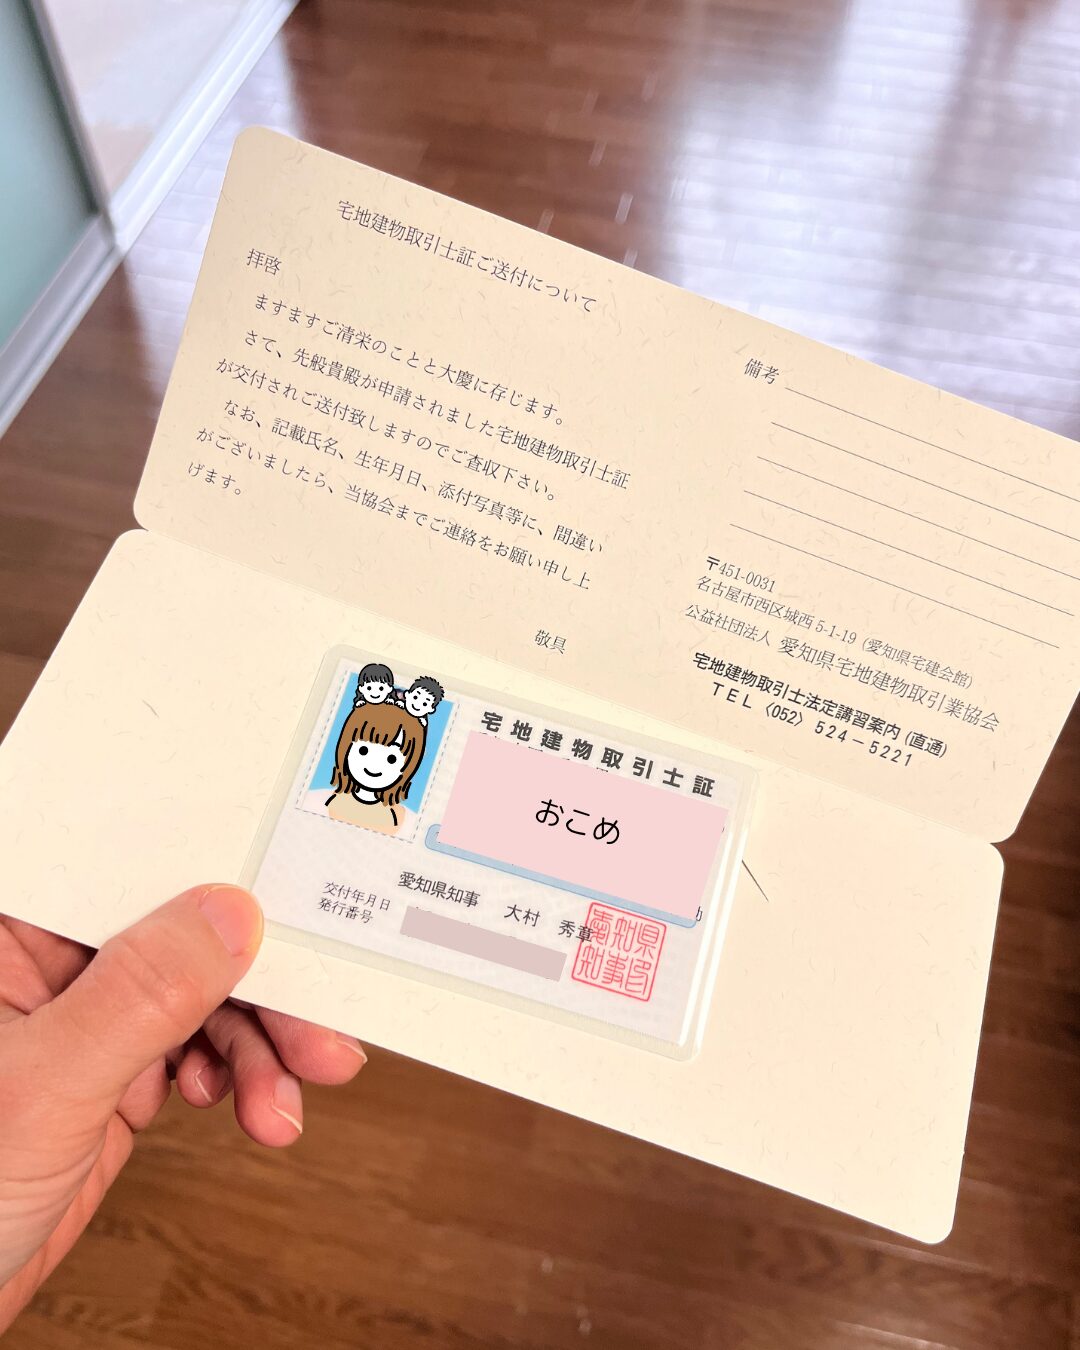 宅地建物取引士証ご送付について
拝啓
ますますご清栄のことと大慶に存じます。
さて、先般貴殿が申請されました宅地建物取引士証
が交付されご送付致しますのでご査収下さい。
なお、記載氏名、生年月日、添付写真等に、間違い
がございましたら、当協会までご連絡をお願い申し上
げます。
敬具
備考
〒451-0031
名古屋市西区城西 5-1-19 (愛知県宅建会館)
公益社団法人 愛知県宅地建物取引業協会
宅地建物取引士法定講習案内 (直通)
TEL 〈052〉 524-5221
宅地建物取引士証
おこめ
愛知県知事 大村 秀章
交付年月日
発行番号
愛知県
知事印